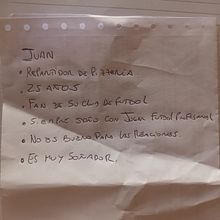 JUAN
• REPARTIDOR DE PIZZERIA
• 25 AÑOS
• FAN DE SU CLUB DE FUTBOL
• SIEMPRE SOÑO CON JUGAR FUTBOL PROFESIONAL
• NO ES BUENO PARA LAS RELACIONES.
• ES MUY SOÑADOR.